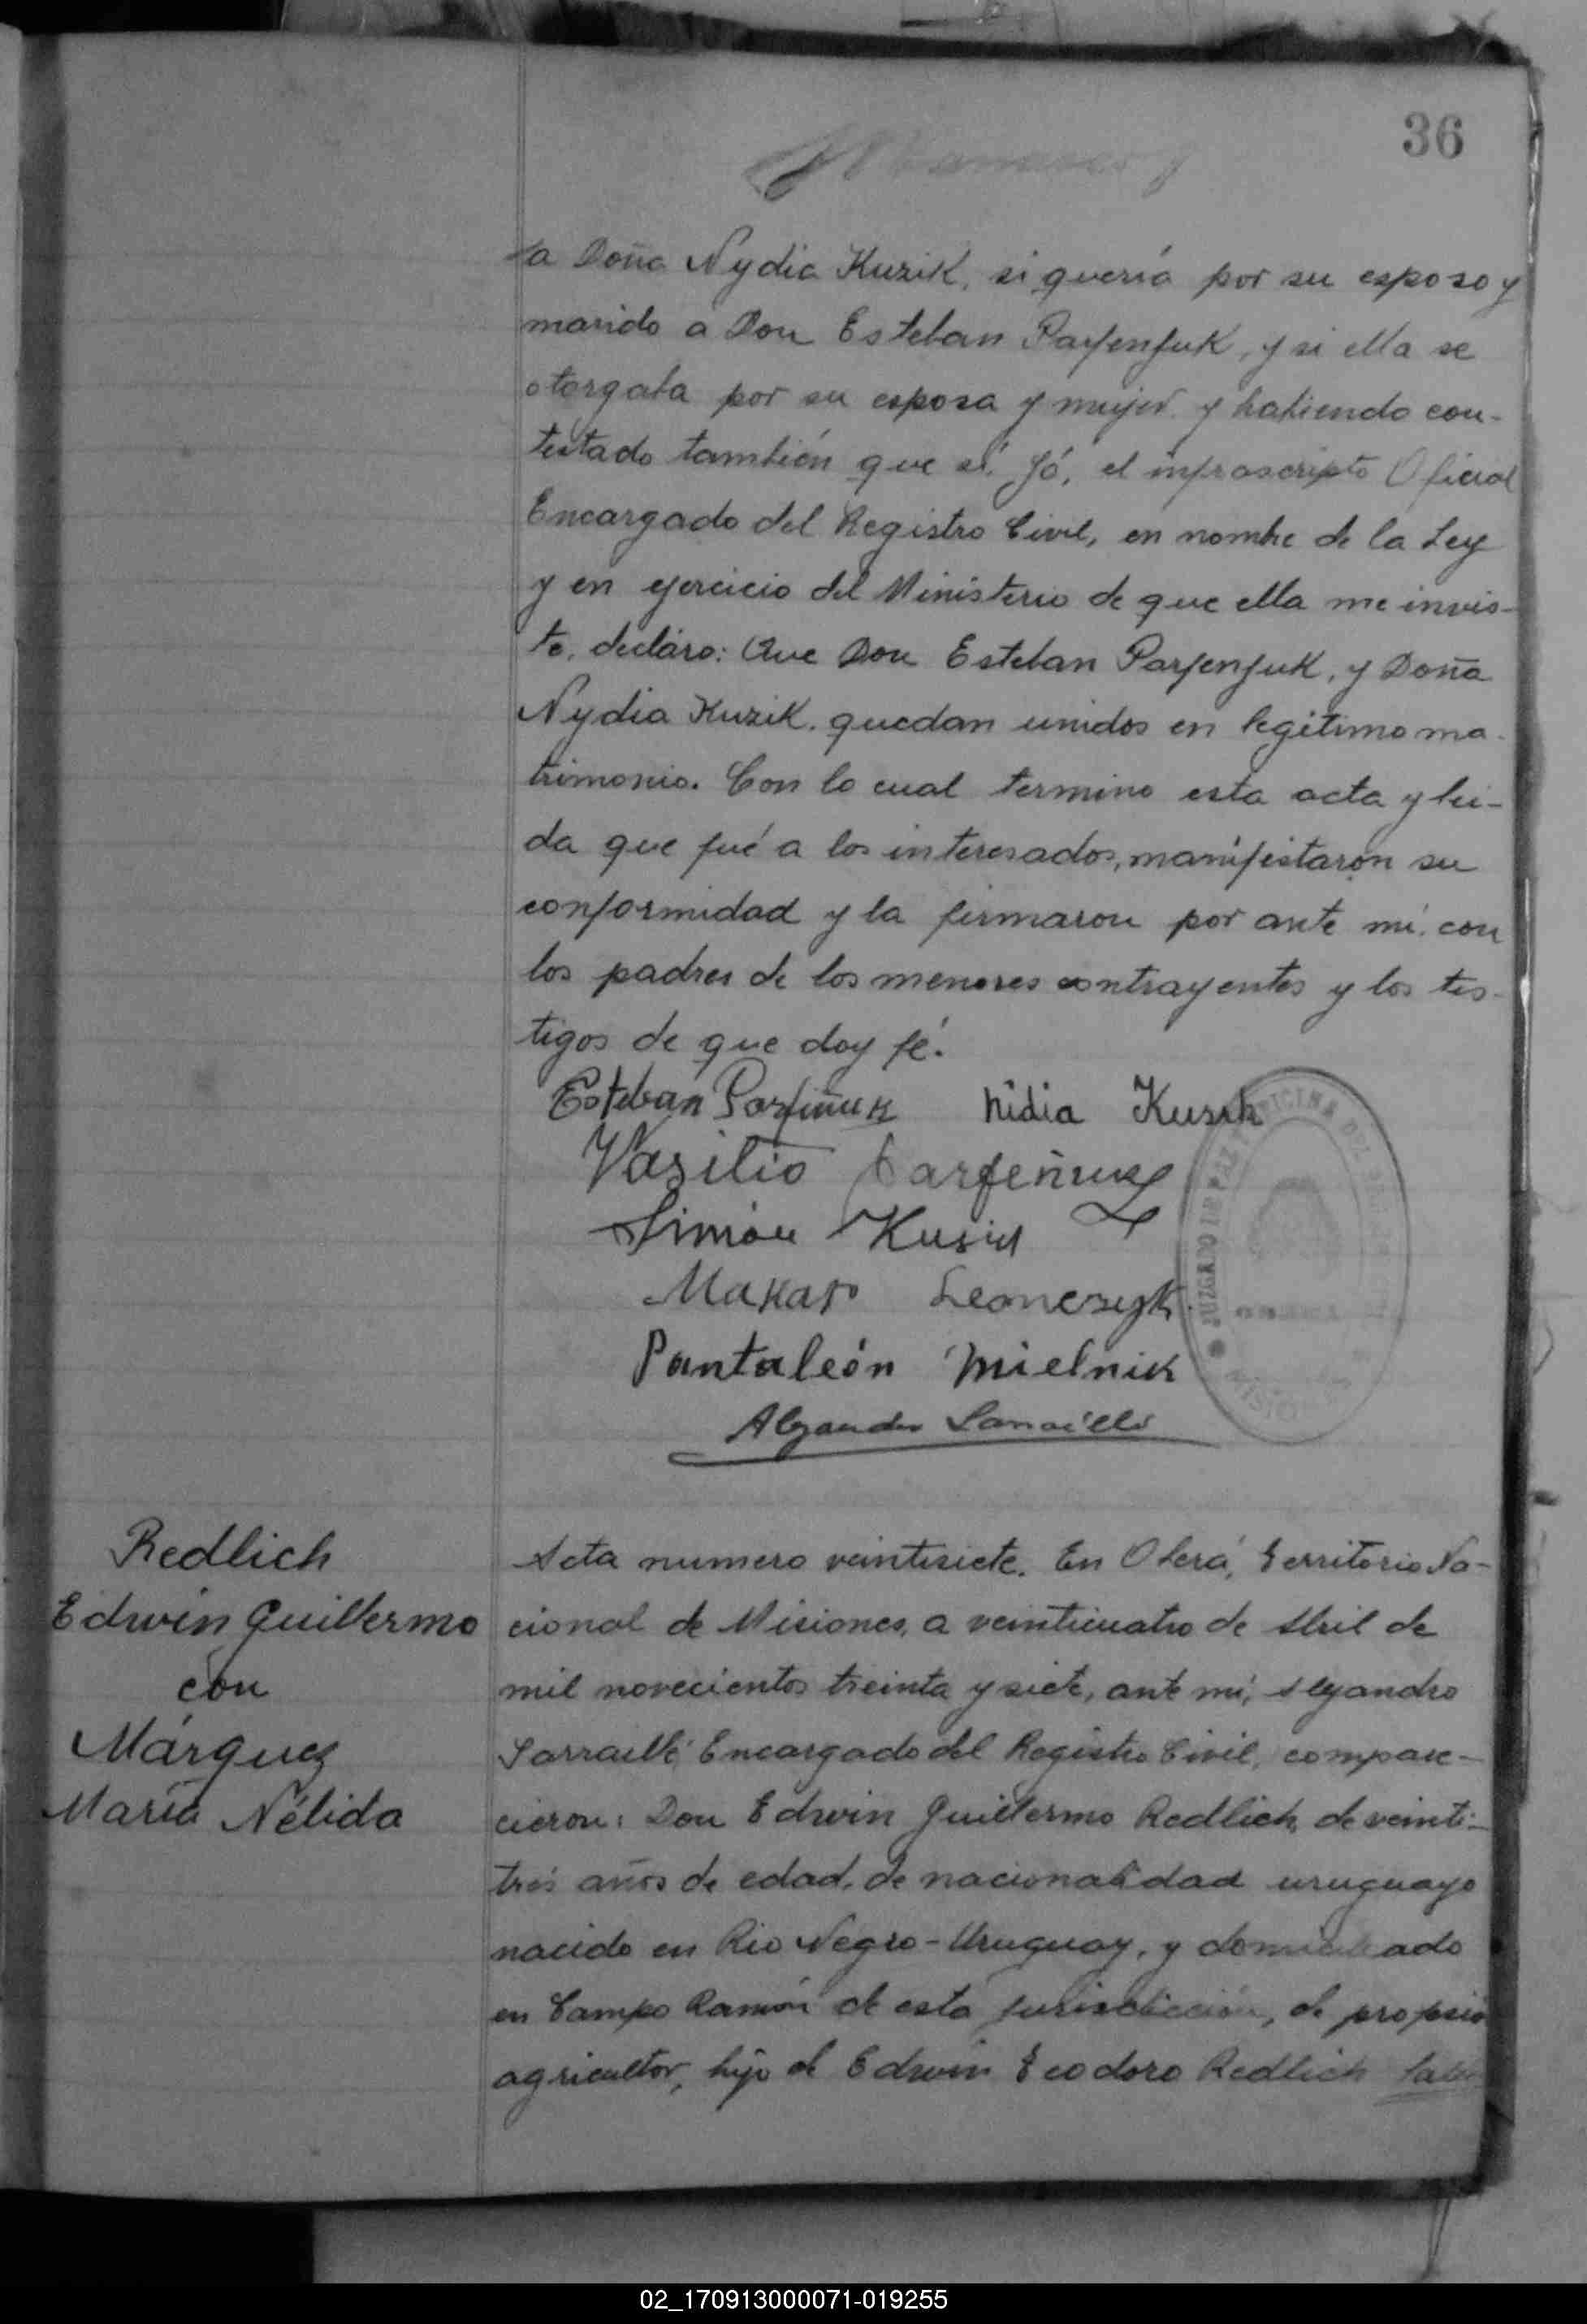 36
a Doña Nydia Kuzik, si quería por su esposo y
marido a Don Esteban Parfenjuk, y si ella se
otorgaba por su esposa y mujer y habiendo con-
testado también que sí. Yó, el infrascripto Oficial
Encargado del Registro Civil, en nombre de la Ley
y en ejercicio del Ministerio de que ella me invis-
te, declaro: Que Don Esteban Parfenjuk, y Doña
Nydia Kuzik. quedan unidos en legítimo ma-
trimonio. Con lo cual termino esta acta y leí-
da que fué a los interesados, manifestaron su
conformidad y la firmaron por ante mí, con
los padres de los menores contrayentes y los tes-
tigos de que doy fé.
Esteban Parfiñuk nidia Kusik
Vasilio Parfeñuk
Simón Kusik
Makar Leonczyk
Pantaleón Mielnik
Alejandro Sarraillé
JUZGADO DE PAZ OFICINA DEL
Redlich
Edwin Guillermo
con
Márquez
María Nélida
Acta numero veintisiete. En Oberá, Territorio Na-
cional de Misiones, a veinticuatro de Abril de
mil novecientos treinta y siete, ante mí, Alejandro
Sarraillé Encargado del Registro Civil, compare-
cieron: Don Edwin Guillermo Redlich, de veinti-
trés años de edad, de nacionalidad uruguayo
nacido en Rio Negro-Uruguay, y domiciliado
en Campo Ramón de esta jurisdicción, de profesión
agricultor, hijo de Edwin Teodoro Redlich
02_170913000071-019255